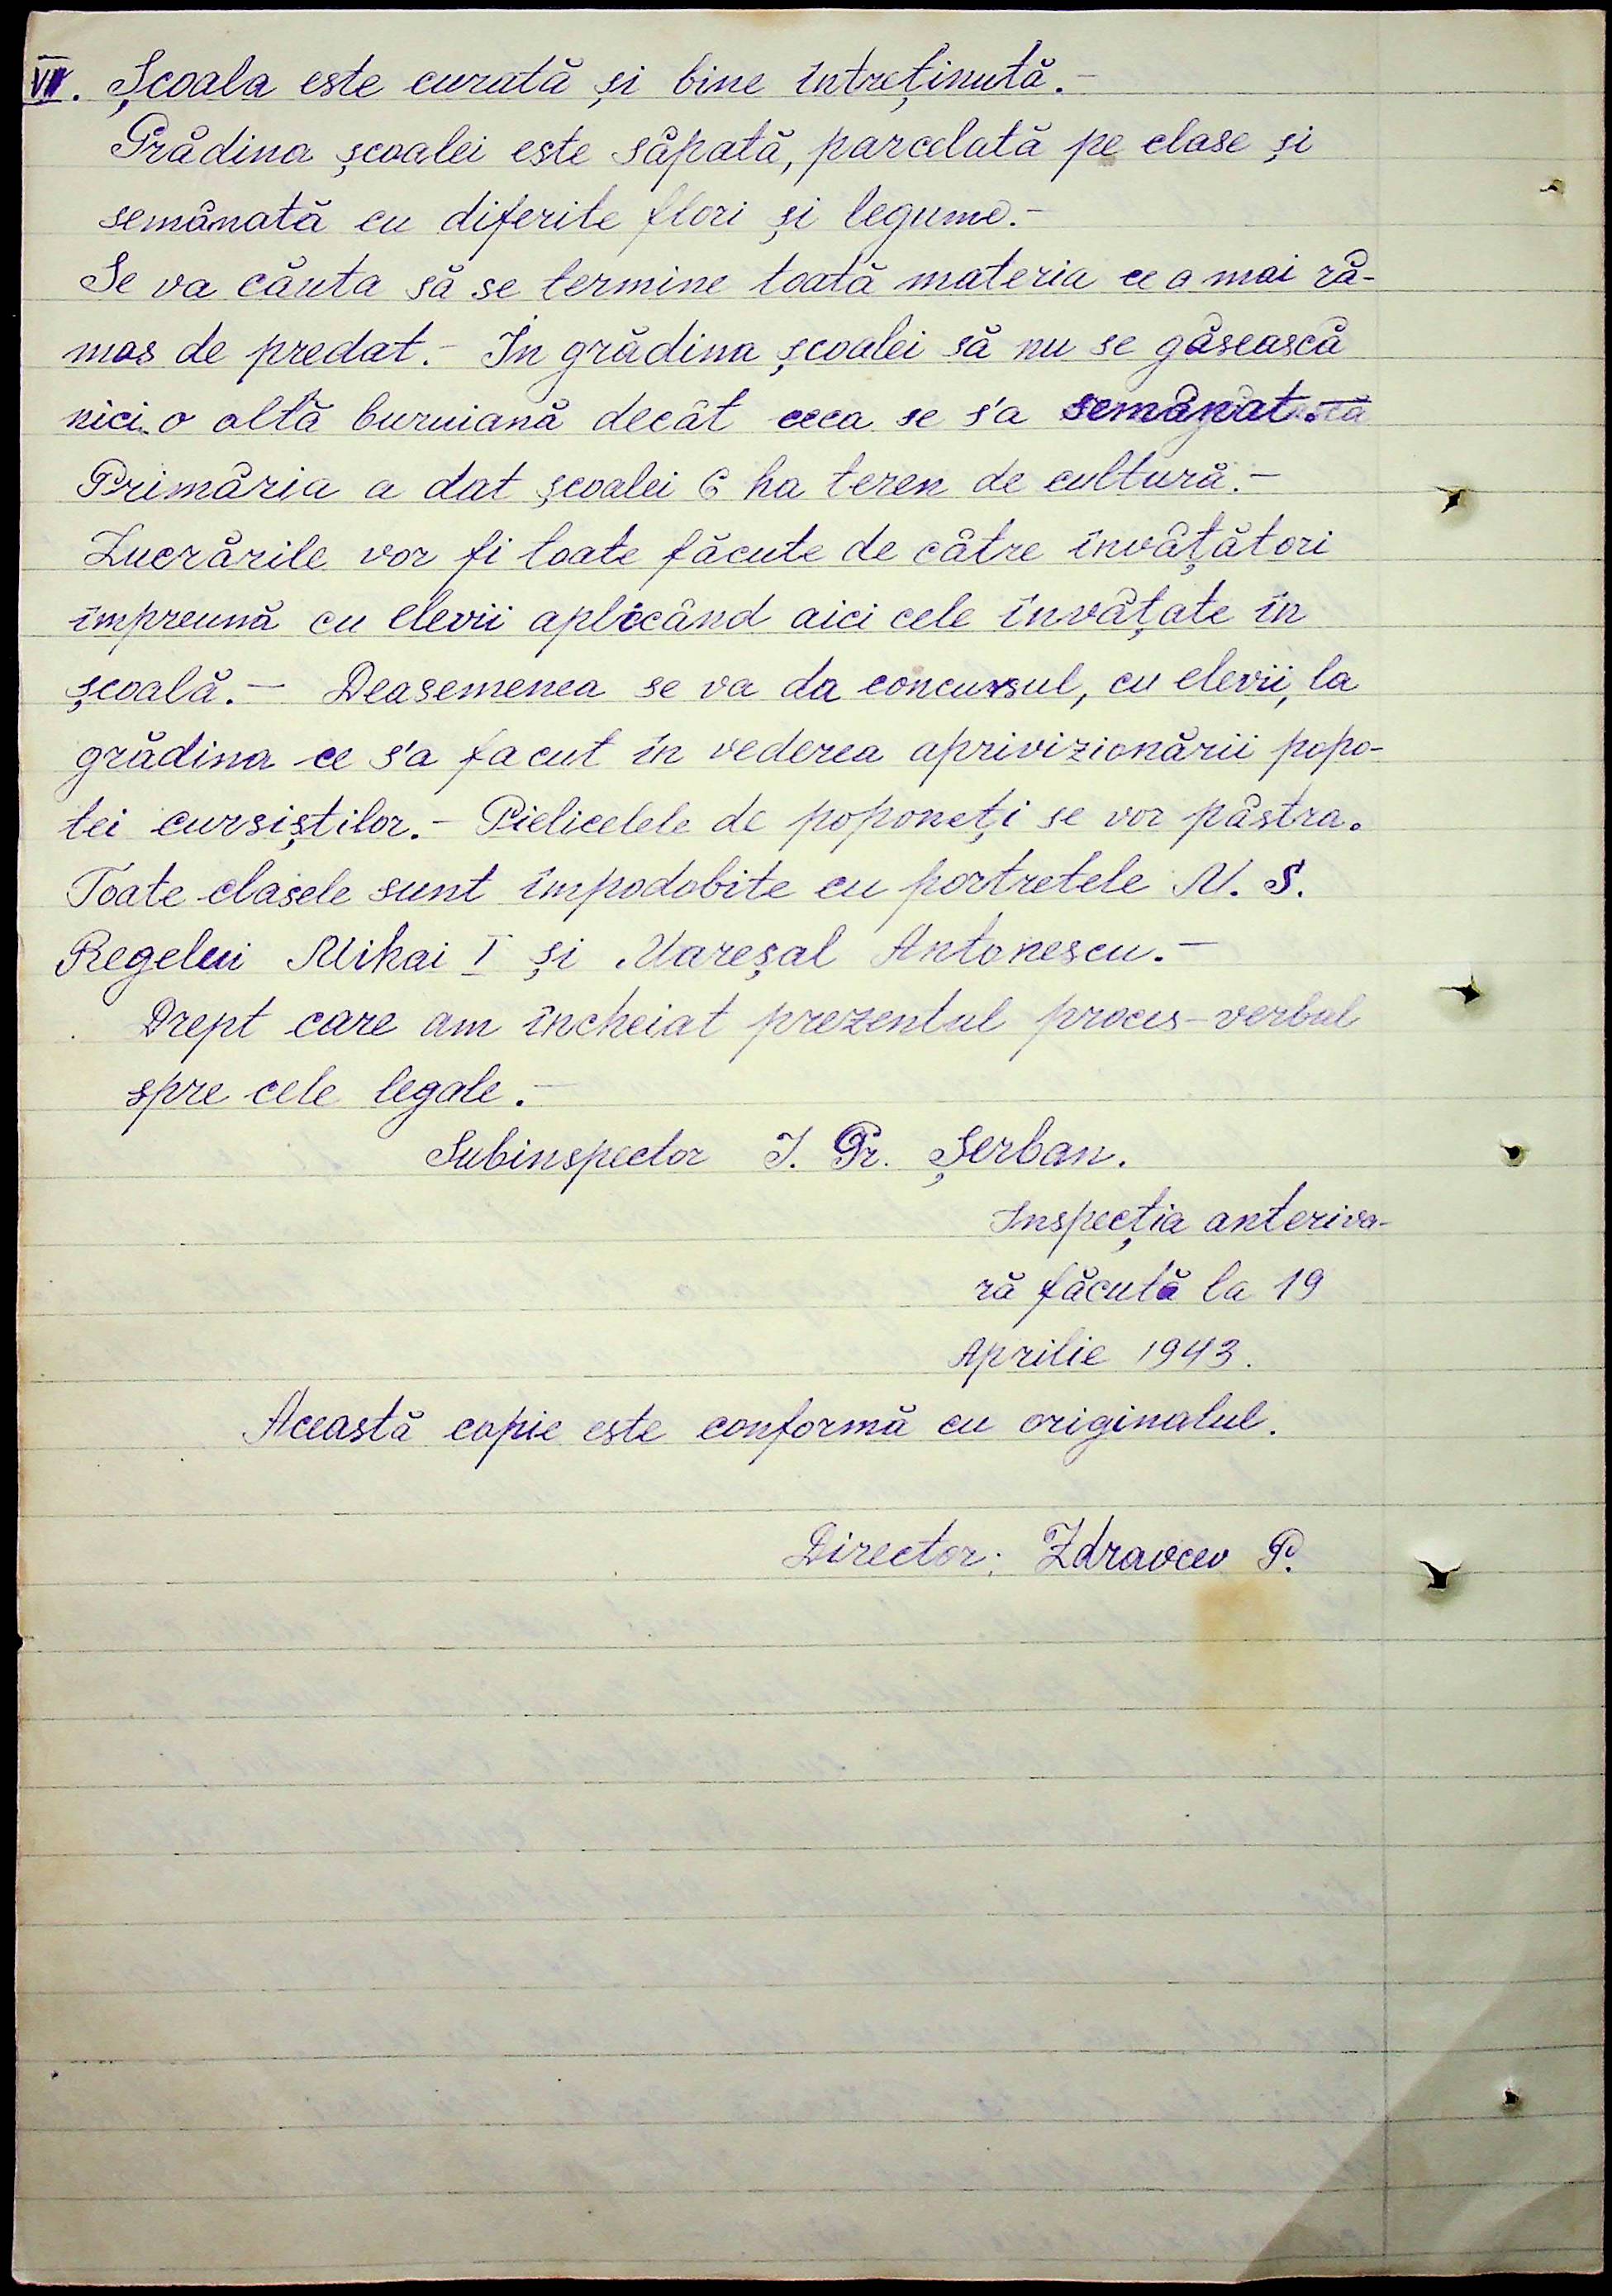 VII. Școala este curată și bine întreținută.-
Grădina școalei este săpată, parcelată pe clase și
semănată cu diferite flori și legume.-
Se va căuta să se termine toată materia ce a mai ră-
mas de predat.- În grădina școalei să nu se găsească
nici o altă buruiană decât ceea se s'a semănat.
Primăria a dat școalei 6 ha teren de cultură.-
Lucrările vor fi toate făcute de către învățători
împreună cu elevii aplicând aici cele învățate în
școală.- Deasemenea se va da concursul, cu elevii, la
grădina ce s'a facut în vederea aprivizionării popo-
tei cursiștilor.- Pielicelele de poponeți se vor păstra.
Toate clasele sunt împodobite cu portretele M. S.
Regelui Mihai I și Mareșal Antonescu.-
Drept care am încheiat prezentul proces-verbal
spre cele legale.-
Subinspector I. Gr. Șerban.
Inspecția anterioa-
ră făcută la 19
Aprilie 1943.
Această copie este conformă cu originalul.
Director: Zdravcev P.